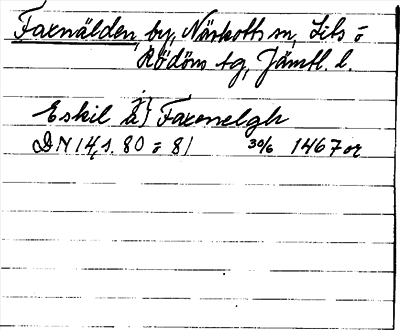 Faxnälden, by, Näskotts sn, Lits o
Rödöns tg, Jämtl. l.
Eskil i } å } Faxenelgh
DN 14, s. 80 o 81 30/6 1467 or